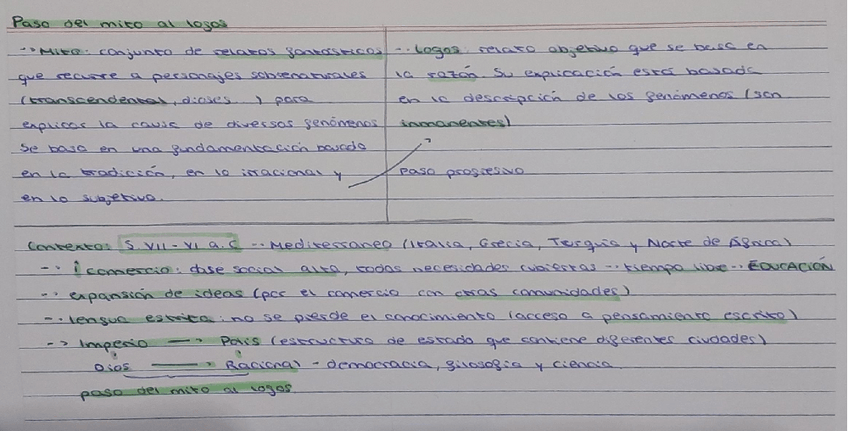 Paso del mito al logos
-> Mito: conjunto de relatos fantásticos
que recurre a personajes sobrenaturales
(transcendental, dioses...) para
explicar la causa de diversos fenómenos
Se basa en una fundamentación basada
en la tradición, en lo irracional y
en lo subjetivo.
-- Logos: relato objetivo que se basa en
la razón. Su explicación está basada
en la descripción de los fenómenos (son
inmanentes)
paso progresivo
Contexto: S. VII - VI a.C -- Mediterraneo (Italia, Grecia, Turquía y Norte de África)
-> ↑ comercio: clase social alta, todas necesidades cubiertas -- tiempo libre -- EDUCACIÓN
-- expansión de ideas (por el comercio con otras comunidades)
-- lengua escrita: no se pierde el conocimiento (acceso a pensamiento escrito)
-> Imperio -> País (estructura de estado que contiene diferentes ciudades)
Dios -> Racional - democracia, filosofía y ciencia
paso del mito al logos